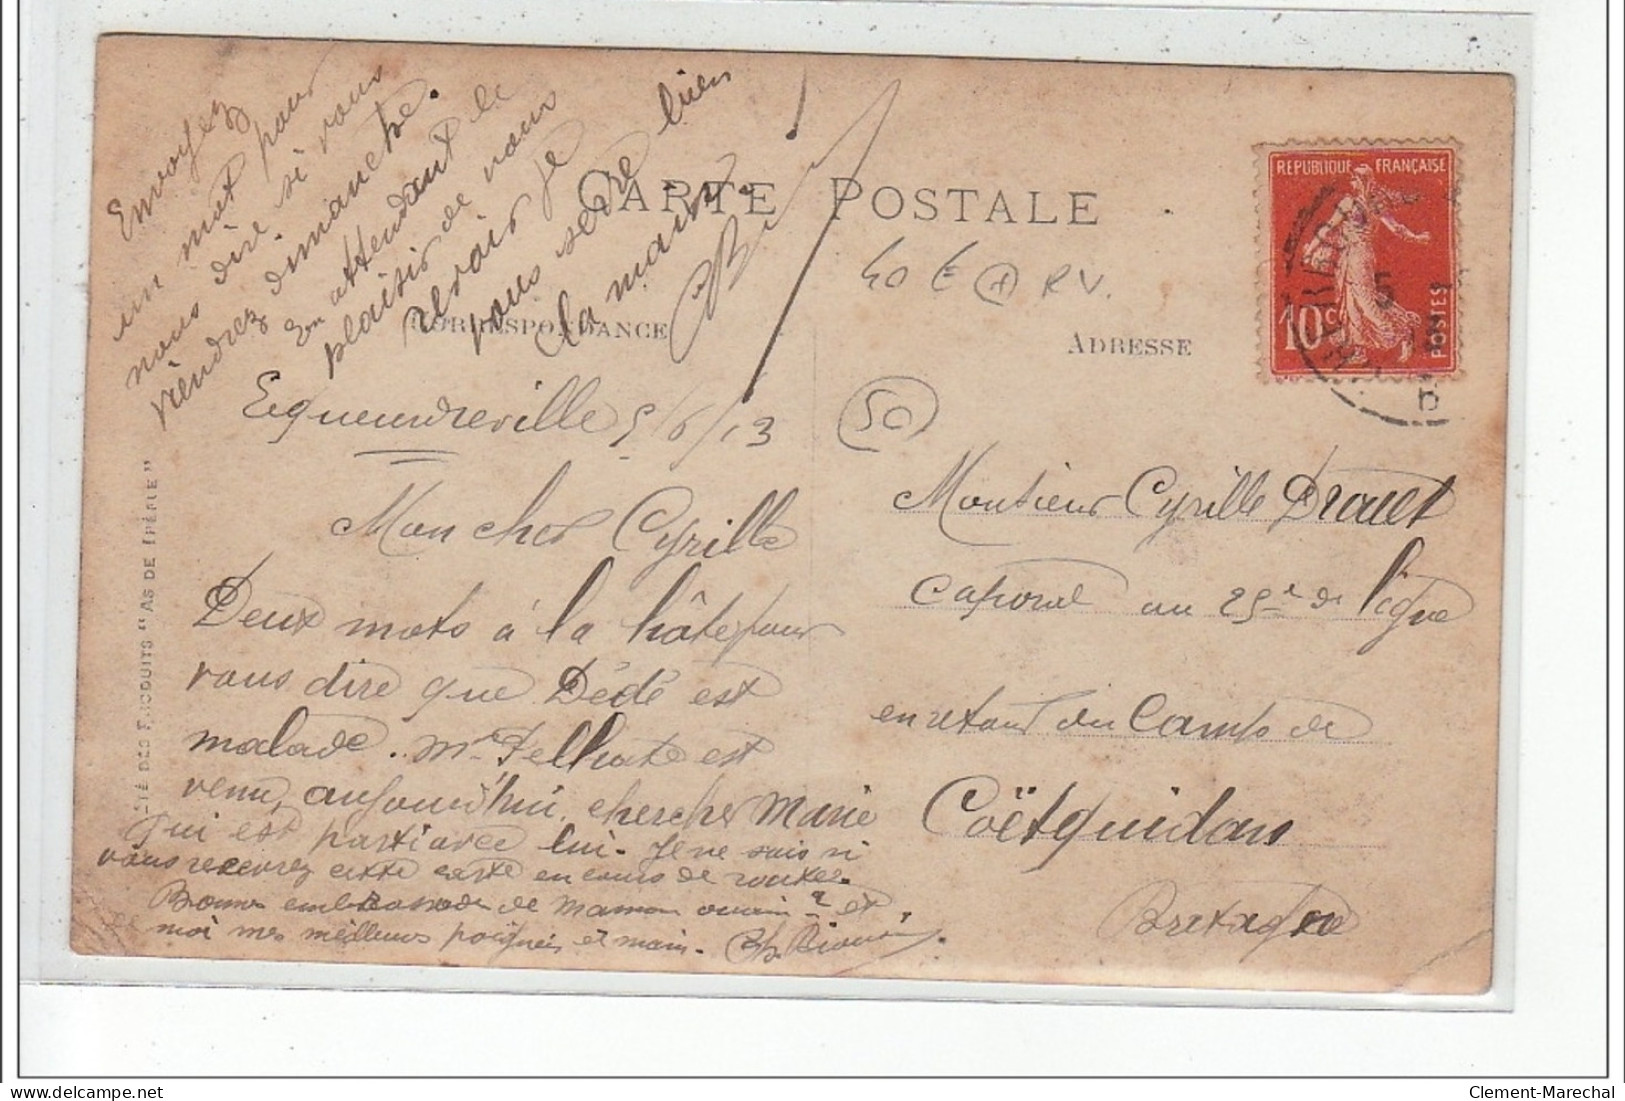 Envoyez
un mot pour
nous dire si vous
viendrez dimanche.
En attendant le
plaisir de vous
revoir je
vous serre bien
la main.
CARTE POSTALE
40 E RV.
CORRESPONDANCE
ADRESSE
REPUBLIQUE FRANÇAISE
10c
POSTES
5
Equeurdreville 5/6/13
50
Mon cher Cyrille
Deux mots à la hâte pour
vous dire que Dédé est
malade. Mr Pelhate est
venu, aujourd'hui, chercher Marie
qui est parti avec lui. Je ne sais si
vous recevrez cette carte en cours de route.
Bonne embrassade de Maman et
moi mes meilleurs poignées et main.
Monsieur Cyrille Drouet
Caporal au 25e de ligne
en retour du Camp de
Coëtquidan
Bretagne
DES PRODUITS "AS DE TRÈFLE"
Clement-Marechal